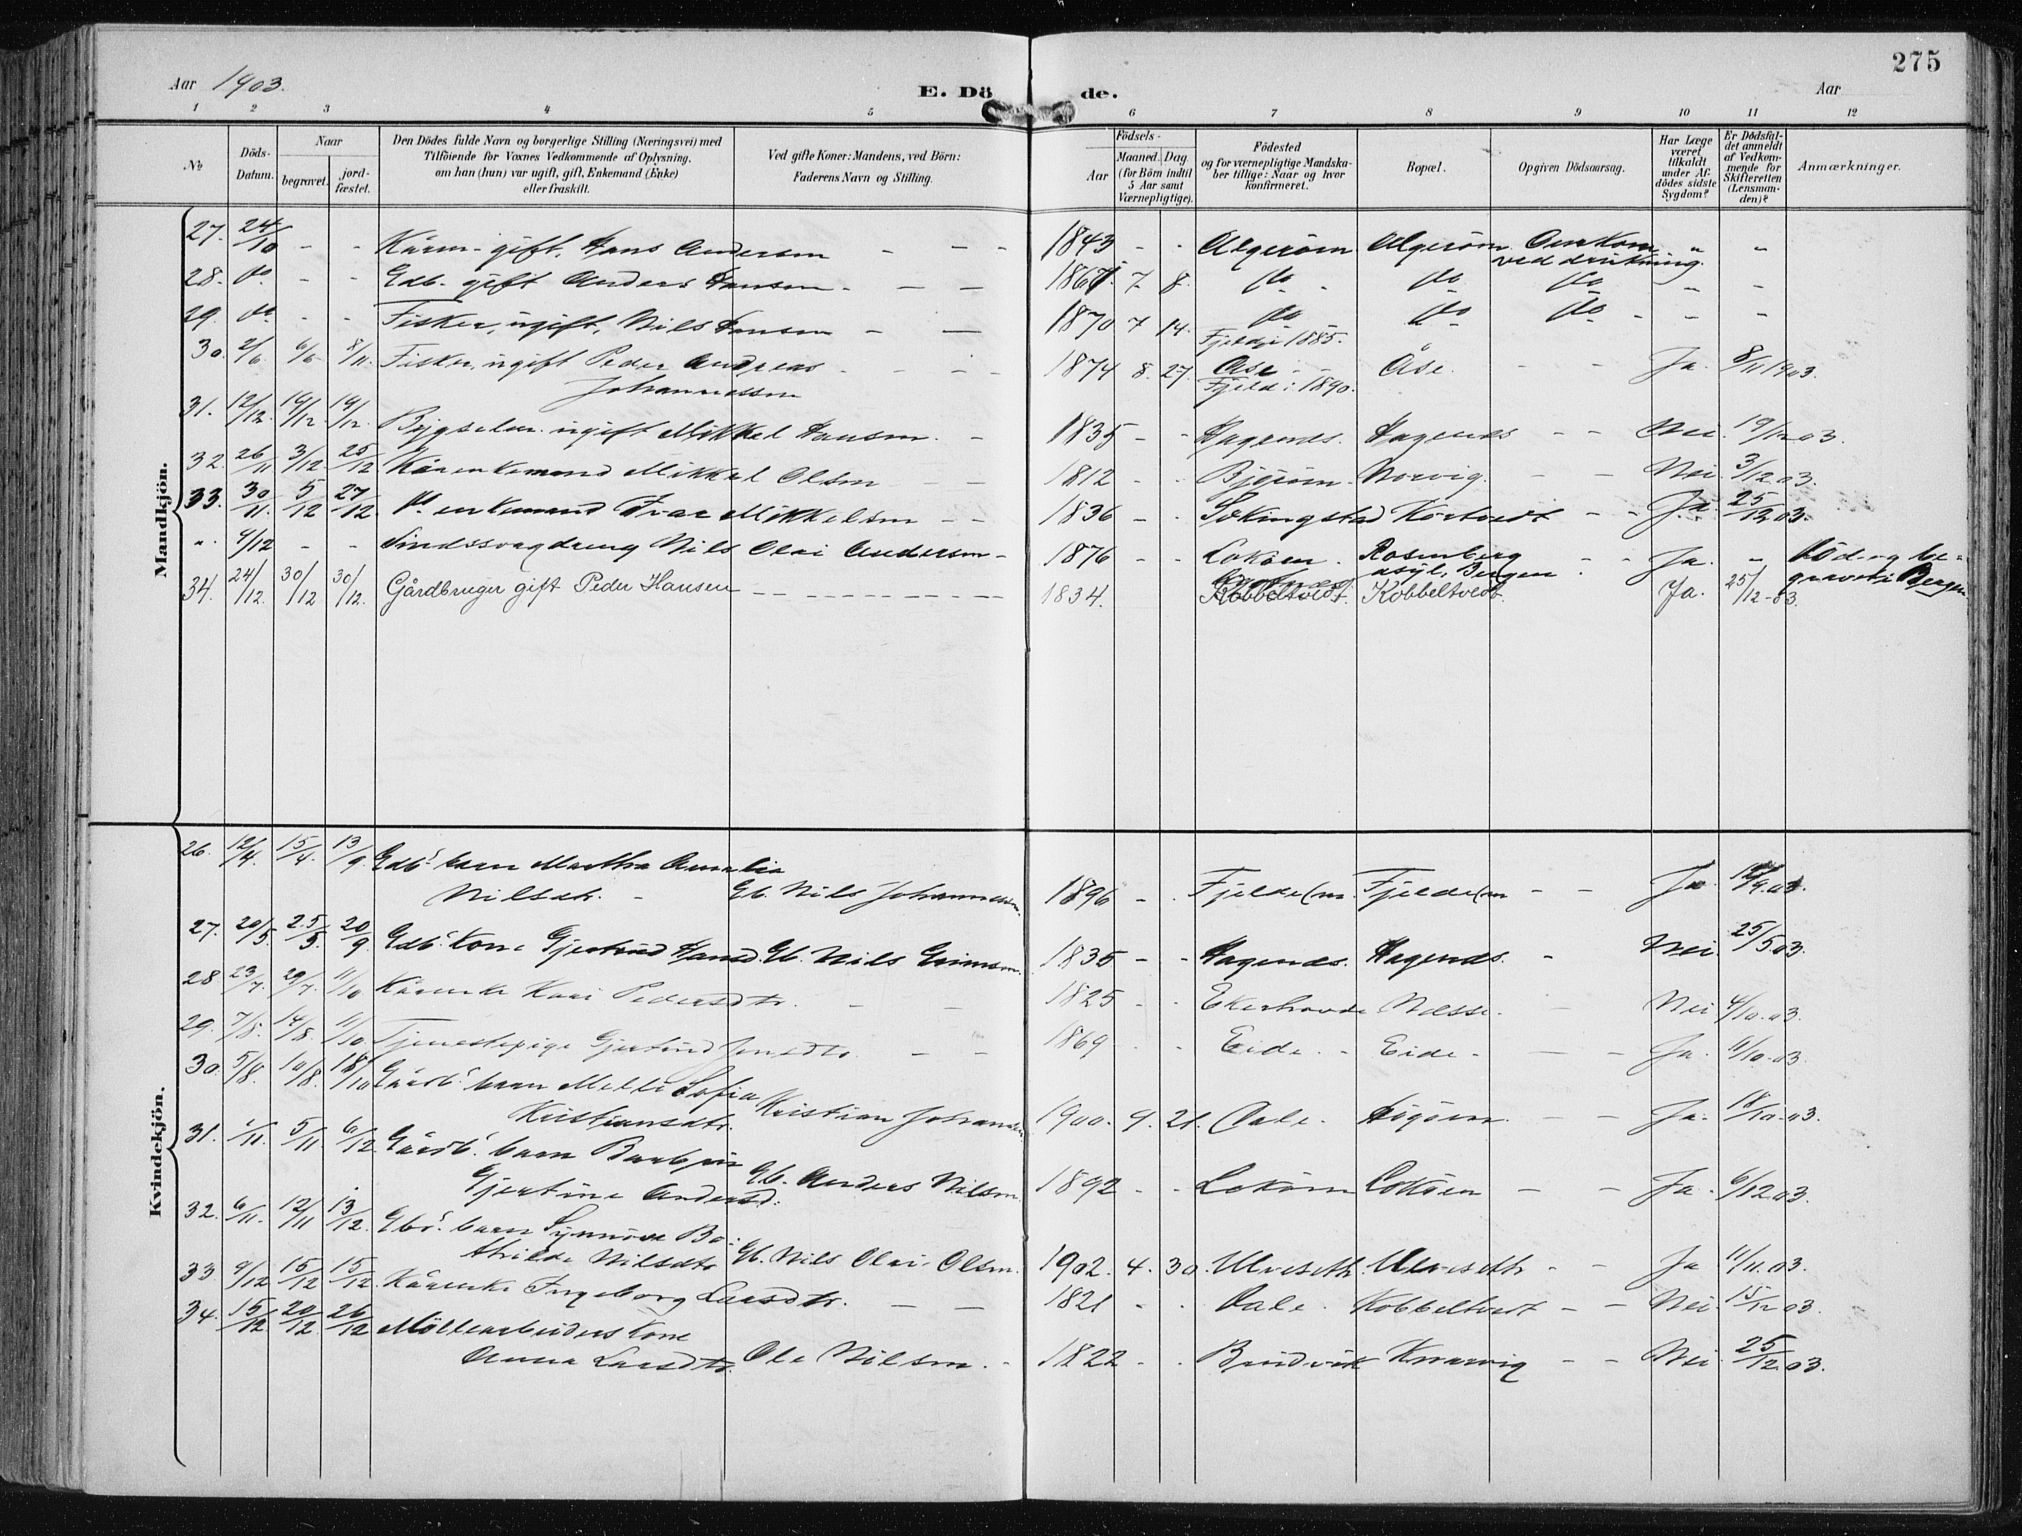 275
Aar 1903.
E. Dö de.
Aar
1 2 3 4 5 6 7 8 9 10 11 12
No
Döds-Datum.
Naar
begravet.
jord-fæstet.
Den Dödes fulde Navn og borgerlige Stilling (Næringsvei) med
Tilföiende for Voxnes Vedkommende af Oplysning.
om han (hun) var ugift, gift, Enkemand (Enke)
eller fraskilt.
Ved gifte Koner: Mandens, ved Börn:
Faderens Navn og Stilling.
Födsels-
Aar
Maaned. Dag
(for Börn indtil
5 Aar samt
Værnepligtige).
Födested
og for værnepligtige Mandska-
ber tillige: Naar og hvor
konfirmeret.
Bopæl.
Opgiven Dödsaarsag.
Har Læge
været
tilkaldt
under Af-
dödes sidste
Sygdom?
Er Dödsfal-
det anmeldt
af Vedkom-
mende for
Skifteretten
(Lensman-
den)?
Anmærkninger.
Mandkjön.
27. 24/10 - - Kårm. gift, Hans Andersen - - - 1843 - - Algeröen Algeröen Omkom " "
ved drukning.
28. do - - Gdb. gift Anders Hansen - - - 1867 7 8. do do do - -
29. do - - Fisker, ugift, Nils Hansen - - 1870 7 14. do do do - - -
Fjeld i 1885.
30. 2/6 6/6 8/11. Fisker, ugift Peder Andreas - - - 1874 8. 27. Åse Åse. - - Ja. 8/11 1903.
Johannessen Fjeld i 1890.
31. 12/12. 19/12. 19/12. Bygselm. ugift Mikkel Hansen. - 1835 - - Hagenæs. Hagenæs - - Nei. 19/12.03.
32. 26/11 3/12. 25/12 Kårenkemand Mikkel Olsen - - 1812 - - Björöen. Norvig. - - Nei 3/12 03.
33. 30/11. 5/12 27/12. do enkemand Ivar Mikkelsen - - 1836 - - Sekingstad Kortvedt - - Ja. 25/12 03.
". 4/12 - - Sindssvag dreng Nils Olai Andersen - 1876 - - Loköen. Rosenberg - - Ja. " Död og be-
asyl, Bergen gravet i Bergen
34. 24/12. 30/12 30/12. Gårdbruger gift Peder Hansen - - - - - 1834. Kobbeltvedt. Kobbeltvedt. Ja. 25/12-03.
Kvindekjön.
26. 12/4. 15/4. 13/9 Gdbs. barn Martha Amalia
Nilsdtr. - Gb. Nils Johannessen. 1896 - - Fjelde Fjelde - - Ja 03.
27. 20/5. 25/5. 20/9 Gdbs. Kone Gjertrud Hansd. Gb. Nils Grimsen. 1835 - - Hagenæs. Hagenæs. - Nei. 25/5 03.
28 23/7. 29/7. 11/10 Kårenke Kari Pedersdtr. - - 1825 - - Ekerhovde Nesse. Nei 4/10.03.
29. 7/8. 14/8. 11/10 Tjenestepige Gjertrud Jensdtr. - - 1869 - - Eide. - Eide - - - Ja. 11/10-03.
30. 5/8. 10/8. 18/10 Gårdbs. barn Melle Sofia
Kristiansdtr. Kristian Johannesen 1900. 9. 21. Dale. - - Ja. 18/10-03.
31. 1/11. 5/11 6/12 Gårdbs. barn
Gjertine Andersd. Gb. Anders Nilsen. 1892 - - Loköen Loköen - - Ja. 6/12 03.
32. 6/11. 12/11 13/12. Gbrs. barn Synnöve Bo-
thilde Nilsdtr Gb. Nils Olai Olsen. 1902. 4. 30. Ulveseth. Ulveseth - - Ja 11/11.03.
33. 9/12 15/12 15/12. Kårenke Ingeborg Larsdtr. - - 1821 - - Dale. Kobbeltvedt - - Nei. 15/12 03.
34. 15/12 20/12 26/12 Möllearbeiders Kone
Anna Larsdtr. Ole Nilsen. - 1822 - - Brudvik Knarvig - - Nei 25/12.03.